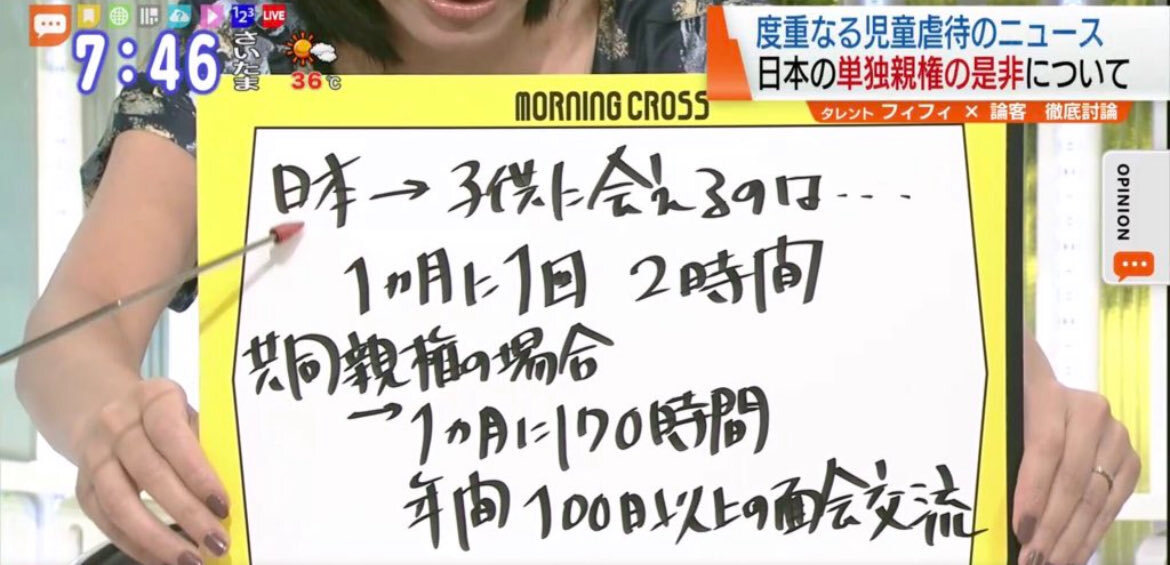 123
LIVE
7:46
さいたま
36℃
度重なる児童虐待のニュース
日本の単独親権の是非について
タレント フィフィ × 論客 徹底討論
OPINION
MORNING CROSS
日本→子供に会えるのは...
1ヵ月に1回 2時間
共同親権の場合
→1ヵ月に170時間
年間100日以上の面会交流